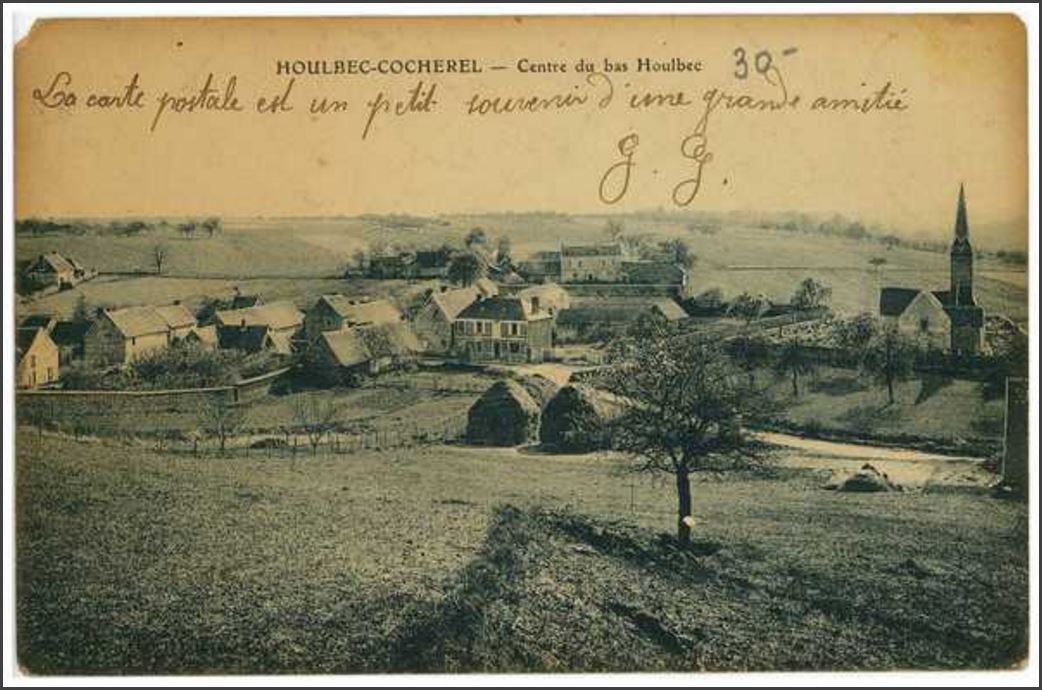 HOULBEC-COCHEREL — Centre du bas Houlbec
30-
La carte postale est un petit souvenir d'une grande amitié
G. G.